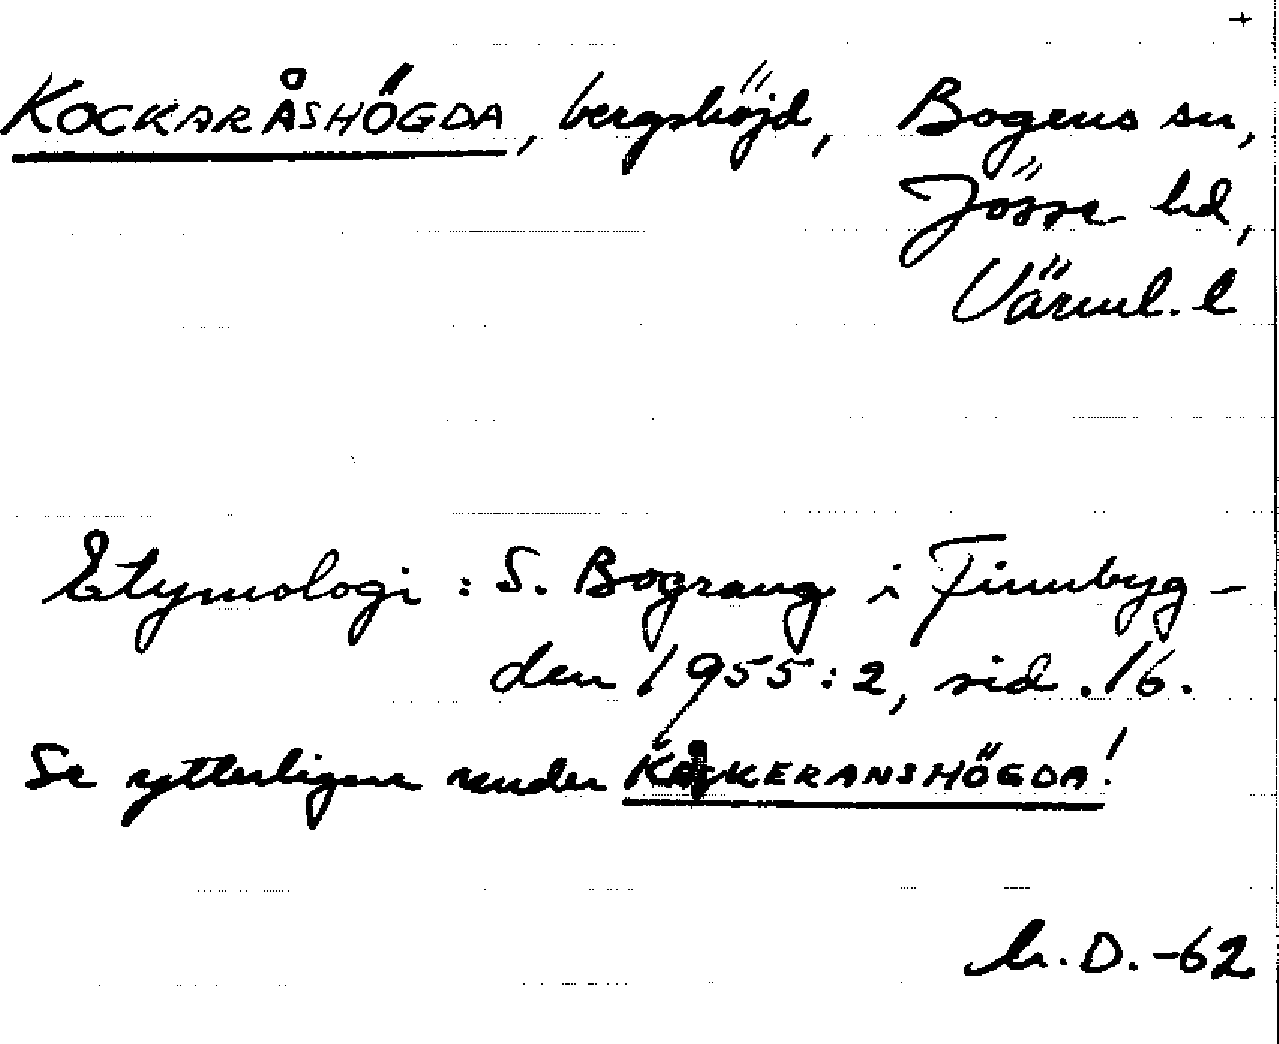 +
KOCKARÅSHÖGDA, bergshöjd, Bogens sn,
Jösse hd,
Värml. l
Etymologi : S. Bograng i Finnbyg-
den 1955:2, sid. 16.
Se ytterligare under KOCKERANSHÖGDA!
D.-62